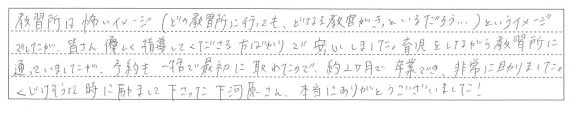 教習所は怖いイメージ(どの教習所に行っても、どなる教官がきっといるだろう…)というイメージ
でしたが、皆さん優しく指導してくださる方ばかりで安心しました。育児をしながら教習所に
通っていましたが、予約も一括で最初に取れたので、約2ヶ月で卒業でき、非常に助かりました。
くじけそうな時に励まして下さった下河原さん、本当にありがとうございました!